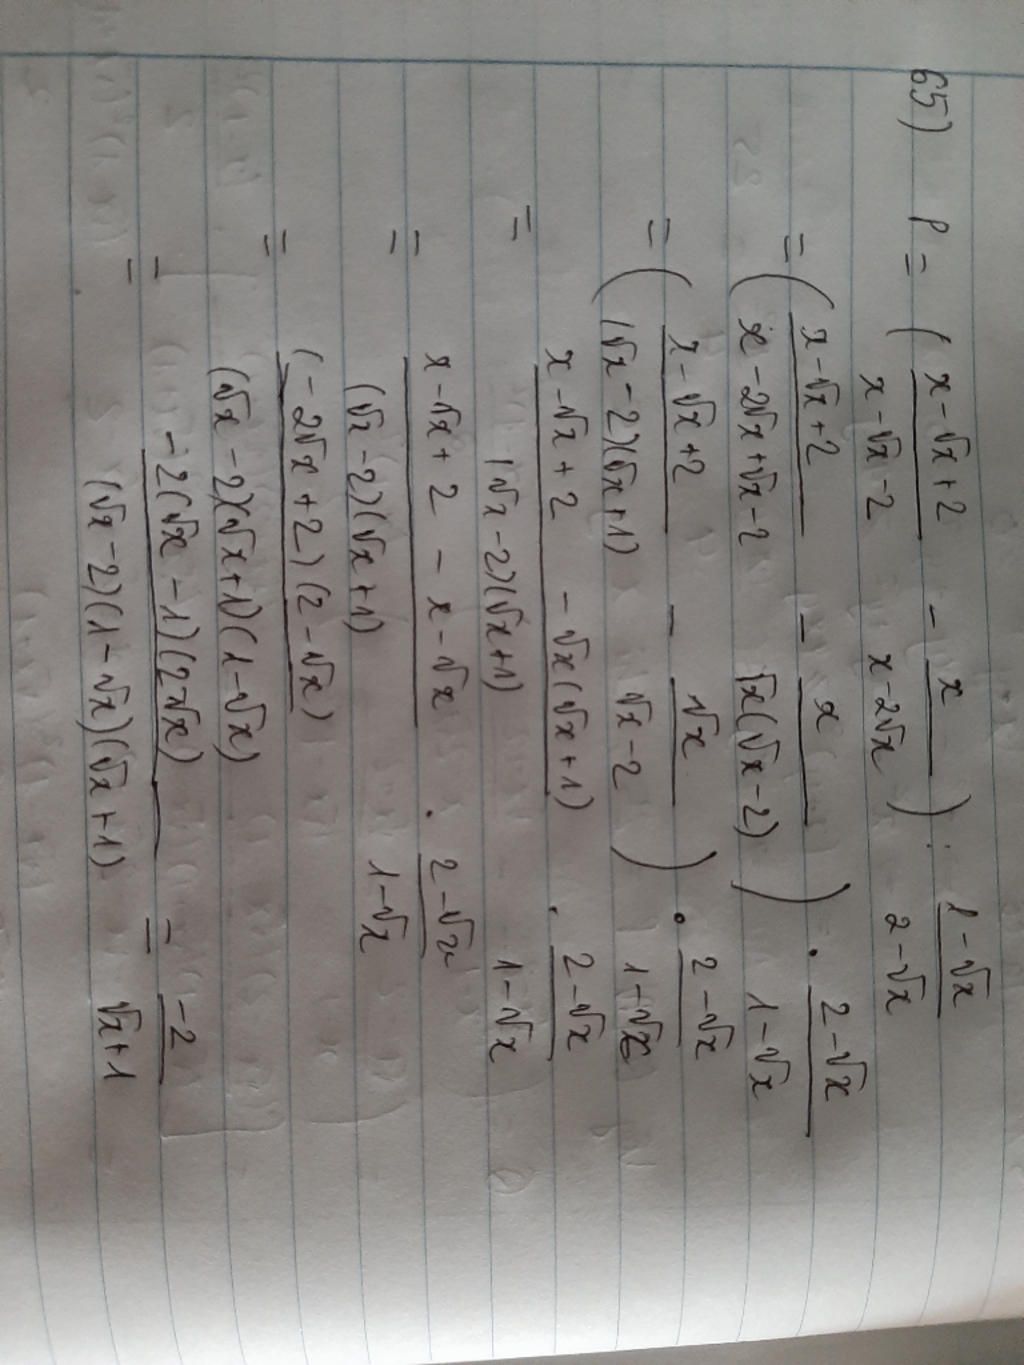 65) P = ( (x - √x + 2)/(x - √x - 2) - x/(x - 2√x) ) : (1 - √x)/(2 - √x)
= ( (x - √x + 2)/(x - 2√x + √x - 2) - x/(√x(√x - 2)) ) . (2 - √x)/(1 - √x)
= ( (x - √x + 2)/((√x - 2)(√x + 1)) - √x/(√x - 2) ) . (2 - √x)/(1 - √x)
= (x - √x + 2 - √x(√x + 1))/((√x - 2)(√x + 1)) . (2 - √x)/(1 - √x)
= = (x - √x + 2 - x - √x)/((√x - 2)(√x + 1)) . (2 - √x)/(1 - √x)
= ((-2√x + 2)(2 - √x))/((√x - 2)(√x + 1)(1 - √x))
= (-2(√x - 1)(2√x))/((√x - 2)(1 - √x)(√x + 1)) = (-2)/(√x + 1)